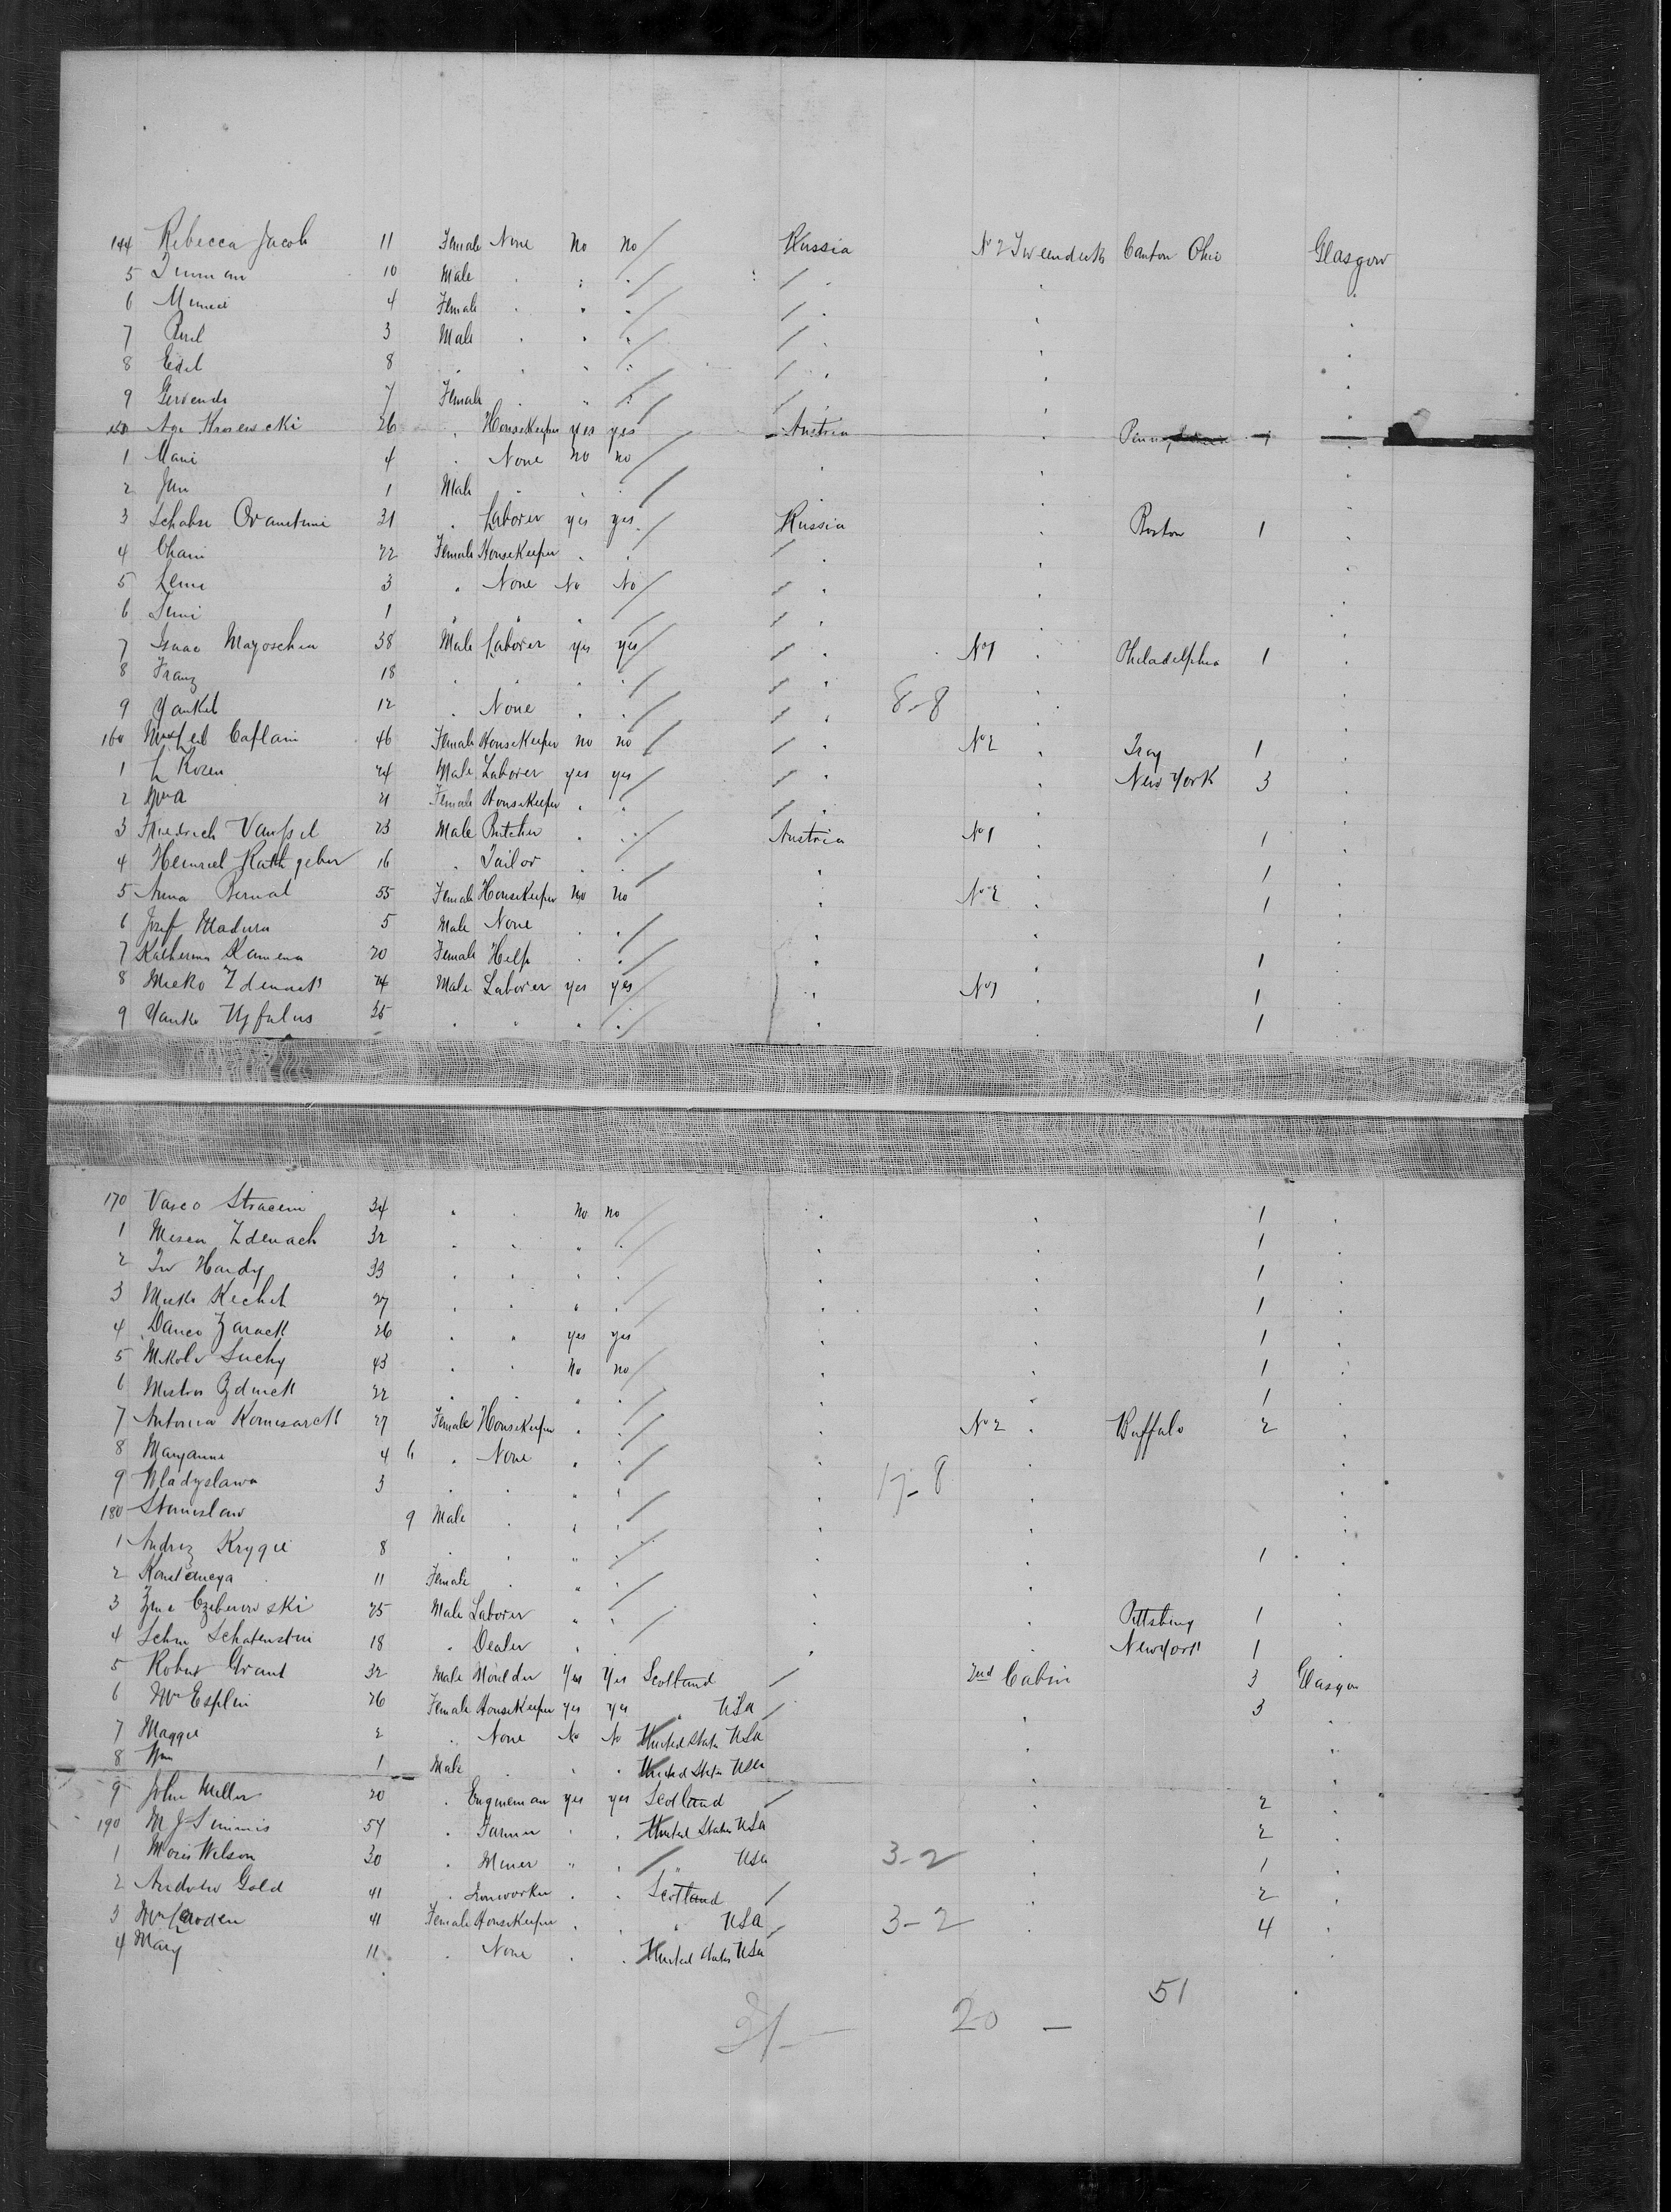 144 Rebecca Jacob 11 Female None No No / Russia No 2 Tweendeck Canton Ohio Glasgow
5 10 Male " " " / / "
6 4 Female " " " / / "
7 3 Male " " " / / "
8 Edel 8 " " " " / / "
9 7 Female " " " / / "
150 26 " Housekeeper yes yes / Austria " 1 "
1 Mani 4 " None no no / " "
2 Jan 1 Male " " " / " "
3 Schabse 31 " Laborer yes yes / Russia " Boston 1 "
4 Chani 22 Female Housekeeper " " / / "
5 Lena 3 " None No No / / "
6 1 " " " " / / "
7 Isaac Mayoschen 38 Male Laborer yes yes / / " No 1 " Philadelphia 1 "
8 Franz 18 " " " " / / "
9 Yankel 12 " None " " / / " 8-8
160 Mrs Leil Caflani 46 Female Housekeeper no no / / " No 2 " Troy 1 "
1 L Kozen 24 Male Laborer yes yes / / " New York 3 "
2 21 Female Housekeeper " " / / "
3 Friedrich 23 Male Butcher " " / Austria No 1 1 "
4 Heinrich Rathgeber 16 " Tailor " " / " 1 "
5 Anna Bernat 55 Female Housekeeper No No " No 2 " 1 "
6 Josef Madura 5 Male None " " / " "
7 Katherina Kamena 20 Female Help " " / " 1 "
8 Mieko Zdenack 24 Male Laborer yes yes / " No 1 " 1 "
9 Yanko 35 " " " " / " 1 "
170 Vasco Straceni 34 " " No no / " " 1 "
1 Zdenach 32 " " " " / " " 1 "
2 Hardy 33 " " " " / " " 1 "
3 27 " " " " / " " 1 "
4 Danco Zarack 26 " " yes yes " " 1 "
5 Mikola Suchy 43 " " No no / " " 1 "
6 22 " " " " / " " 1 "
7 Antonia Komisarck 27 Female Housekeeper " " / " No 2 " Buffalo 2 "
8 Maryanna 4 6 " None " " / " " "
9 Wladyslawa 3 " " " " / " 17-8 " "
180 Stanislaw 9 Male " " " / " " "
1 Andrez Krygie 8 " " " " / " " 1 "
2 11 Female " " " / " " "
3 25 Male Laborer " " / " Pittsburg 1 "
4 Schatenstein 18 " Dealer " " / " " New York 1 "
5 Robert Grant 32 Male Moulder Yes Yes Scotland / 2nd Cabin 3 Glasgow
6 Mrs Esplin 26 Female Housekeeper yes yes " USA / " 3 "
7 Maggie 2 " None No No United States USA " "
8 Wm 1 Male " " " United States USA " "
9 John Miller 20 " Engineman yes yes Scotland / " 2 "
190 M J Simmis 54 " Farmer " " United States USA " 2 "
1 Moris Wilson 30 " Miner " " / " USA 3-2 " 1 "
2 Andrew Gold 41 " Ironworker " " Scotland / " 2 "
3 Mrs 41 Female Housekeeper " " " USA / 3-2 " 4 "
4 Mary 11 " None " " United States USA "
31 — 20 — 51